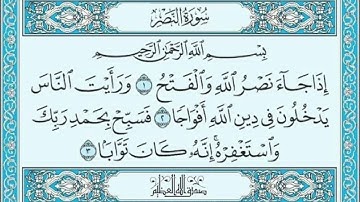 سُورَةُ النَّصْرِ
بِسْمِ اللَّهِ الرَّحْمَٰنِ الرَّحِيمِ
إِذَا جَآءَ نَصْرُ اللَّهِ وَالْفَتْحُ ١ وَرَأَيْتَ النَّاسَ
يَدْخُلُونَ فِي دِينِ اللَّهِ أَفْوَاجًا ٢ فَسَبِّحْ بِحَمْدِ رَبِّكَ
وَاسْتَغْفِرْهُ ۚ إِنَّهُ كَانَ تَوَّابًا ٣
صدق الله العظيم